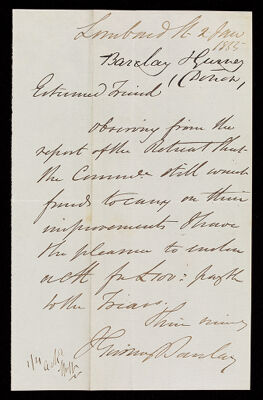 Lombard St. 2 Jan
1855
Barclay J Gurney
(Donor)
Esteemed Friend
observing from the
report of the Retreat that
the Committee still want
funds to carry on their
improvements I have
the pleasure to enclose
a Ch for £100: payble
to the Treasr.
Thine sincerely
J Gurney Barclay